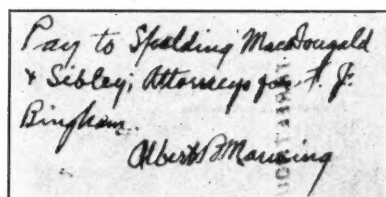 Pay to Spalding MacDougald
& Sibley, Attorneys for F. J.
Bingham.
Albert B Manning